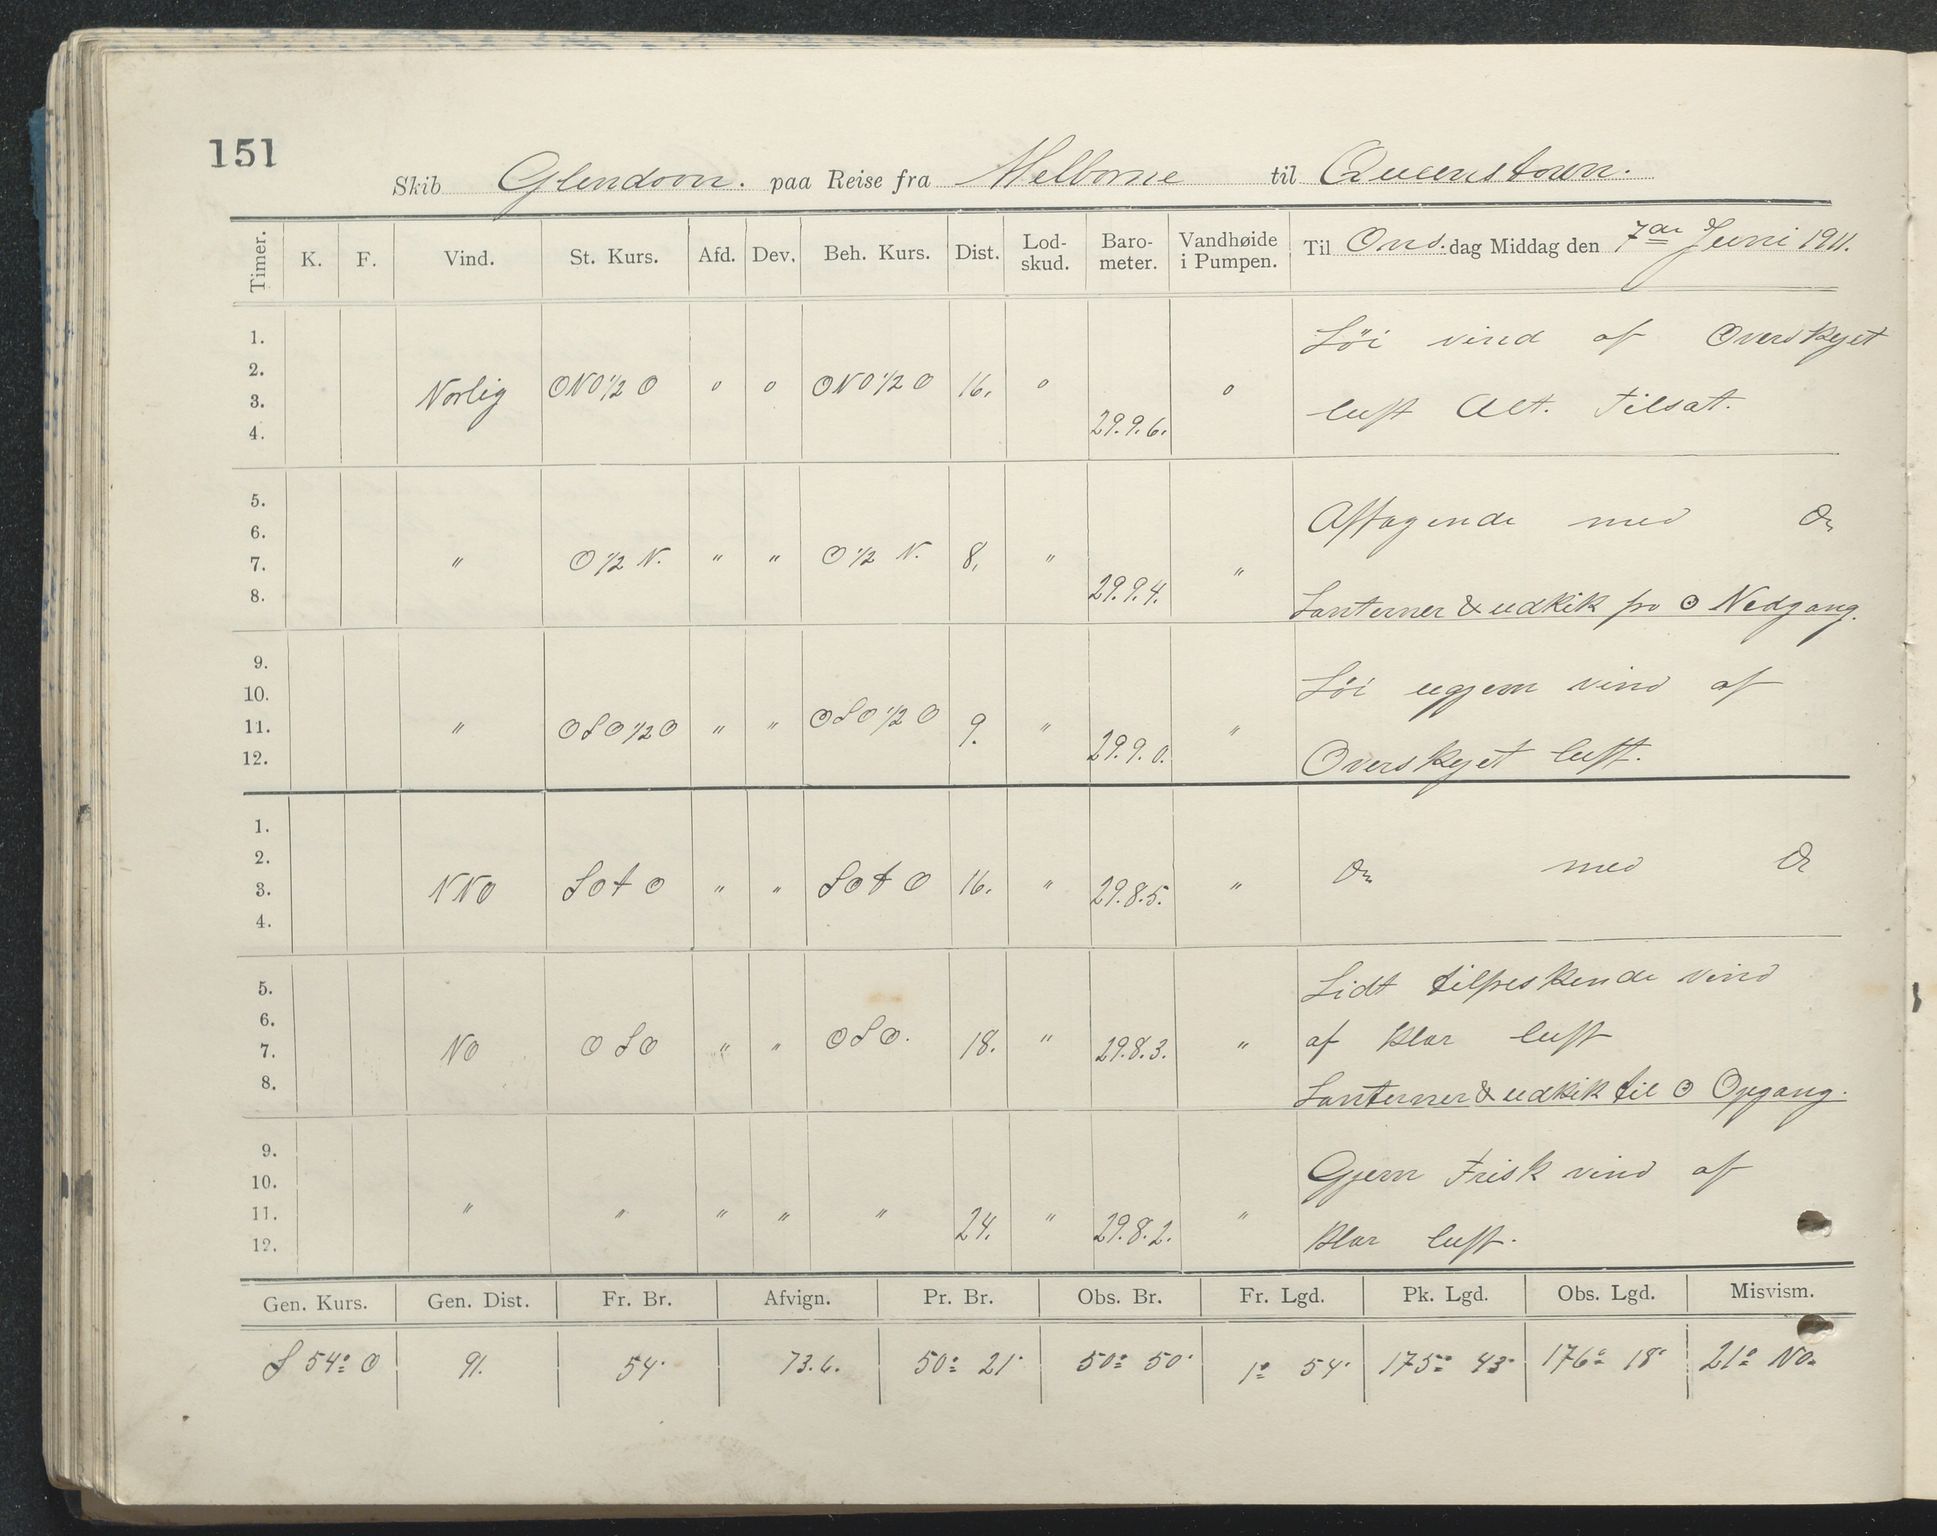 151
Skib Glendoon. paa Reise fra Melborne til Queenstown.
Timer. K. F. Vind. St. Kurs. Afd. Dev. Beh. Kurs. Dist. Lod-skud. Baro-meter. Vandhøide i Pumpen. Til Ons.dag Middag den 7de Juni 1911.
1.
2.
3.
4.
Norlig ONO 1/2 O o o ONO 1/2 O 16. o 29.9.6. o
Löi vind af Overskyet
luft Alt. Tilsat.
5.
6.
7.
8.
" O 1/2 N. " " O 1/2 N. 8. " 29.9.4. "
Aftagende med Do
Lanterner & udkik fra ☉ Nedgang.
9.
10.
11.
12.
" OSO 1/2 O " " OSO 1/2 O 9. " 29.9.0. "
Löi ugjem vind af
Overskyet luft.
1.
2.
3.
4.
NNO SO t O " " SO t O 16. " 29.8.5. "
Do med Do
5.
6.
7.
8.
NO OSO " " OSO. 18. " 29.8.3. "
Lidt tilfreskende vind
af klar luft
Lanterner & udkik til ☉ Opgang.
9.
10.
11.
12.
" " " " " 24. " 29.8.2. "
Gjem Frisk vind af
klar luft.
Gen. Kurs. Gen. Dist. Fr. Br. Afvign. Pr. Br. Obs. Br. Fr. Lgd. Pk. Lgd. Obs. Lgd. Misvism.
S 54° O 91. 54' 73.6. 50° 21' 50° 50' 1° 54' 175° 43' 176° 18' 21° NO.